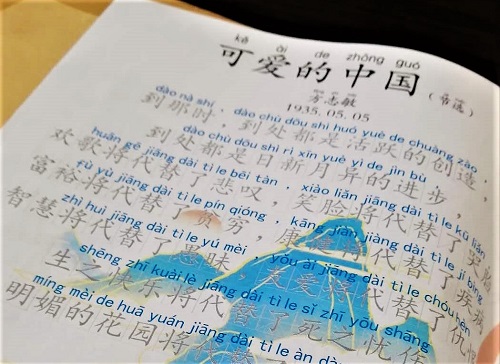 kě ài de zhōng guó
可爱的中国（节选）
方志敏
1935. 05. 05
dào nà shí , dào chù dōu shì huó yuè de chuàng zào ,
到那时，到处都是活跃的创造，
dào chù dōu shì rì xīn yuè yì de jìn bù
到处都是日新月异的进步，
huān gē jiāng dài tì le bēi tàn , xiào liǎn jiāng dài tì le kū liǎn
欢歌将代替了悲叹，笑脸将代替了哭脸
fù yù jiāng dài tì le pín qióng , kāng jiàn jiāng dài tì le jí bìng
富裕将代替了贫穷，康健将代替了疾病
zhì huì jiāng dài tì le yú mèi , yǒu ài jiāng dài tì le chóu
智慧将代替了愚昧，友爱将代替了仇
shēng zhī kuài lè jiāng dài tì le sǐ zhī yōu shāng
生之快乐将代替了死之忧伤
míng mèi de huā yuán jiāng dài tì le àn
明媚的花园将